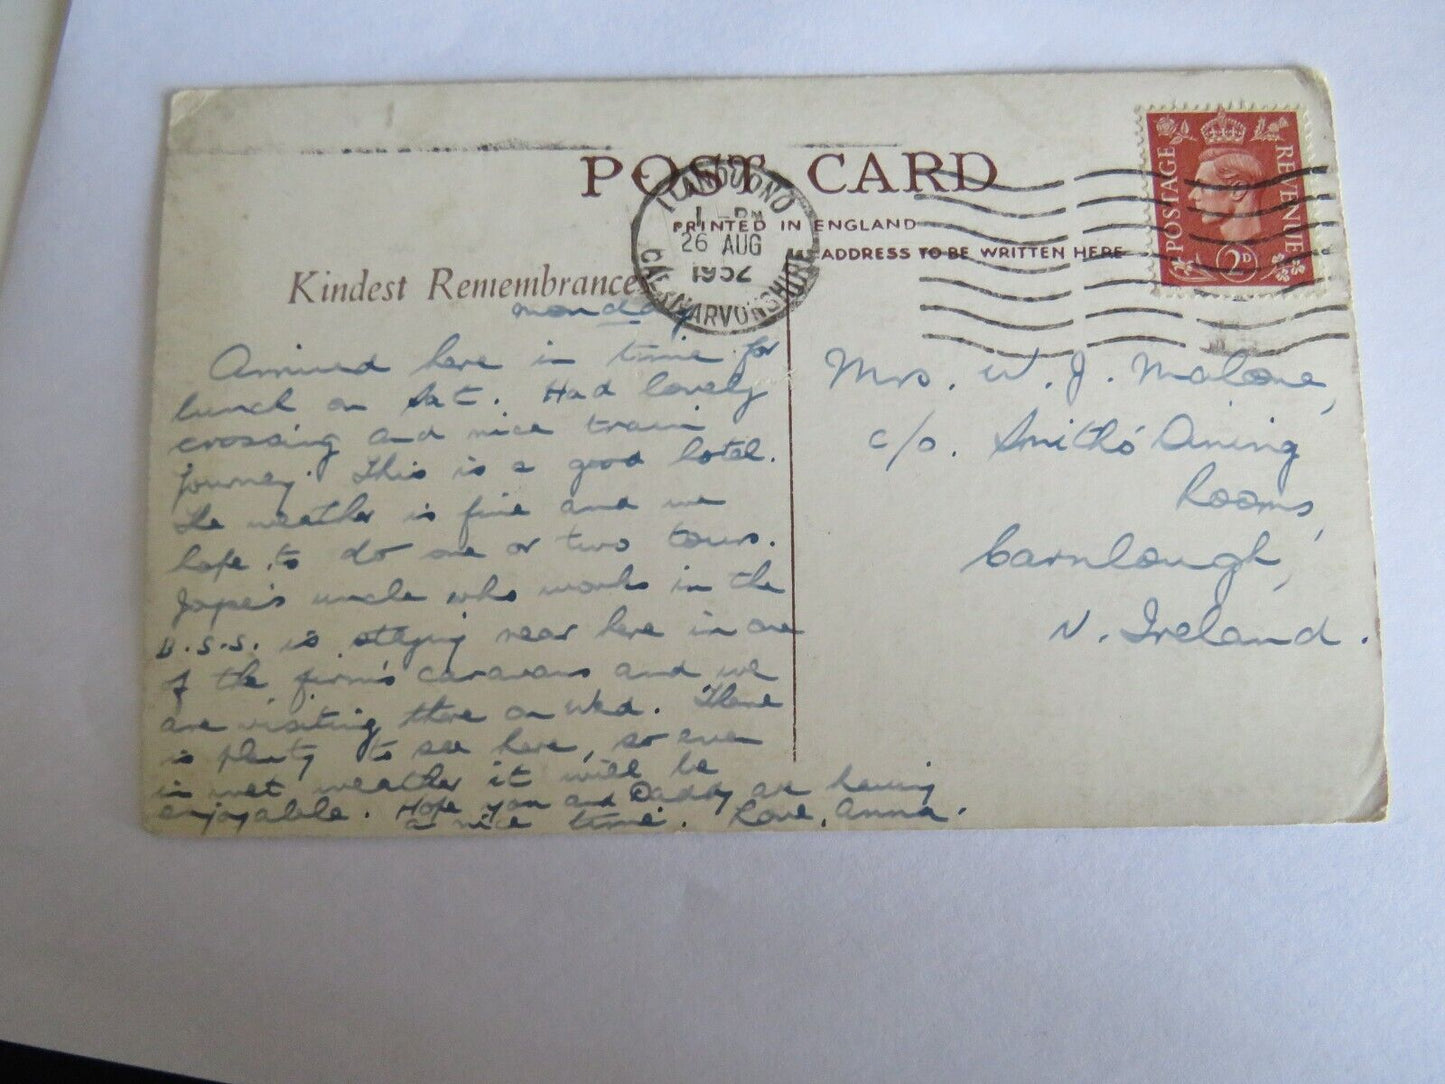 POST CARD
PRINTED IN ENGLAND
ADDRESS TO BE WRITTEN HERE
Kindest Remembrances
LLANDUDNO
1 - PM
26 AUG
1952
CAERNARVONSHIRE
POSTAGE
REVENUE
2D
Monday
Arrived here in time for
lunch on Sat. Had lovely
crossing and nice train
journey. This is a good hotel.
The weather is fine and we
hope to do one or two tours.
uncle who works in the
B.S.S. is staying near here in one
of the firm's caravans and we
are visiting there on Wed. There
is plenty to see here, so even
in wet weather it will be
enjoyable. Hope you and Daddy are having
a nice time. Love, Anna.
Mrs. W. J. Malone,
c/o. Smiths' Dining
Rooms,
Carnlough,
N. Ireland.